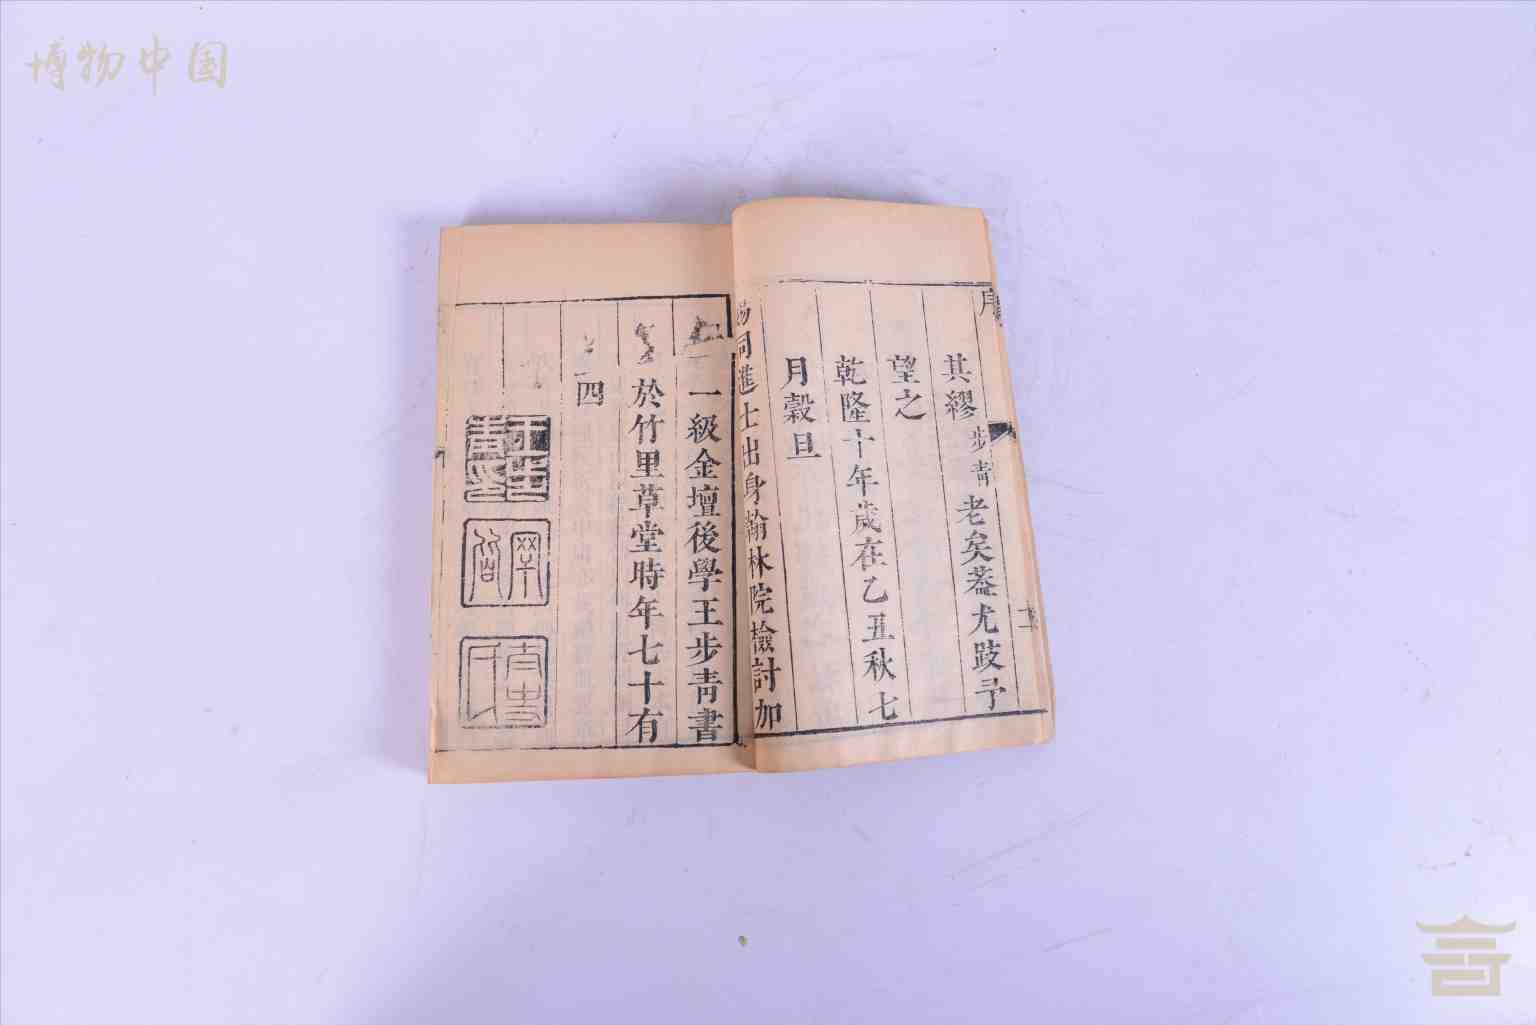 博物中国
序
其繆步青老矣蓋尤跂予
望之
乾隆十年歲在乙丑秋七
月穀旦
賜同進士出身翰林院檢討加
一級金壇後學王步青書
於竹里草堂時年七十有
四